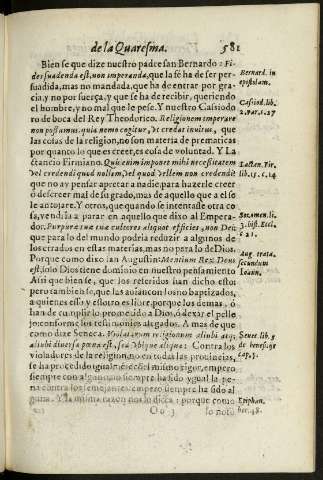 de la Quaresma. 581
Bien se que dize nuestro padre san Bernardo: Fi-
des suadenda est, non imperanda, que la fé ha de ser per-
suadida, mas no mandada, que ha de entrar por gra-
cia, y no por fuerça, y que se ha de recibir, queriendo
el hombre, y no mal que le pese. Y nuestro Casiodo
ro de boca del Rey Theodorico. Religionem imperare
non possumus. quia nemo cogitur, vt credat inuitus, que
las cosas de la religion, no son materia de prematicas
por quanto lo que es creer, es cosa de voluntad. Y La
ctancio Firmiano. Quis enim imponet mihi necesitatem
vel credendi quod nollem, vel quod vellem non credendi?
que no ay pensar apretar a nadie, para hazerle creer
ó descreer mal de su grado, mas de aquello que a el se
le antojare. Y otros, que quando se intentasse otra co
sa, vendria a parar en aquello que dixo al Empera-
dor. Purpuræ tuæ cultores aliquot efficies, non Dei:
que para lo del mundo podria reduzir a algunos de
los errados en estas materias, mas no para lo de Dios.
Porque como dixo san Augustin: Mentium Rex Deus
est, solo Dios tiene dominio en nuestro pensamiento
Assi que bien se, que los referidos han dicho esto:
pero tambien se, que las auian con los no baptizados,
a quienes esso y essotro es libre, porque los demas, ó
han de cumplir lo prometido a Dios, ó dexar el pelle
jo, conforme los testimonios alegados. A mas de que
como dize Seneca. Violatarum religionum aliubi atq;
aliubi diuersa pœna est, sed vbique aliqua: Contra los
violadores de la religion, no en todas las prouincias,
se ha procedido igual con el mismo rigor, empero
siempre con alguno: siempre ha sido ygual la pe-
na contra los semejantes empero siempre ha sido al
guna. Y la misma razon nos lo dicta: porque como
Oo 3 lo noto
Bernard. in
epistolam.
Casiod. lib.
2. var. c. 27
Lactan. Fir.
lib. 5. c. 14
li.
3. hist. Eccl.
c. 21.
Aug. tracta.
secundum
Ioann.
Senec. lib. 3
de benefi.
cap. 5.
Epiphan.
her. 48.